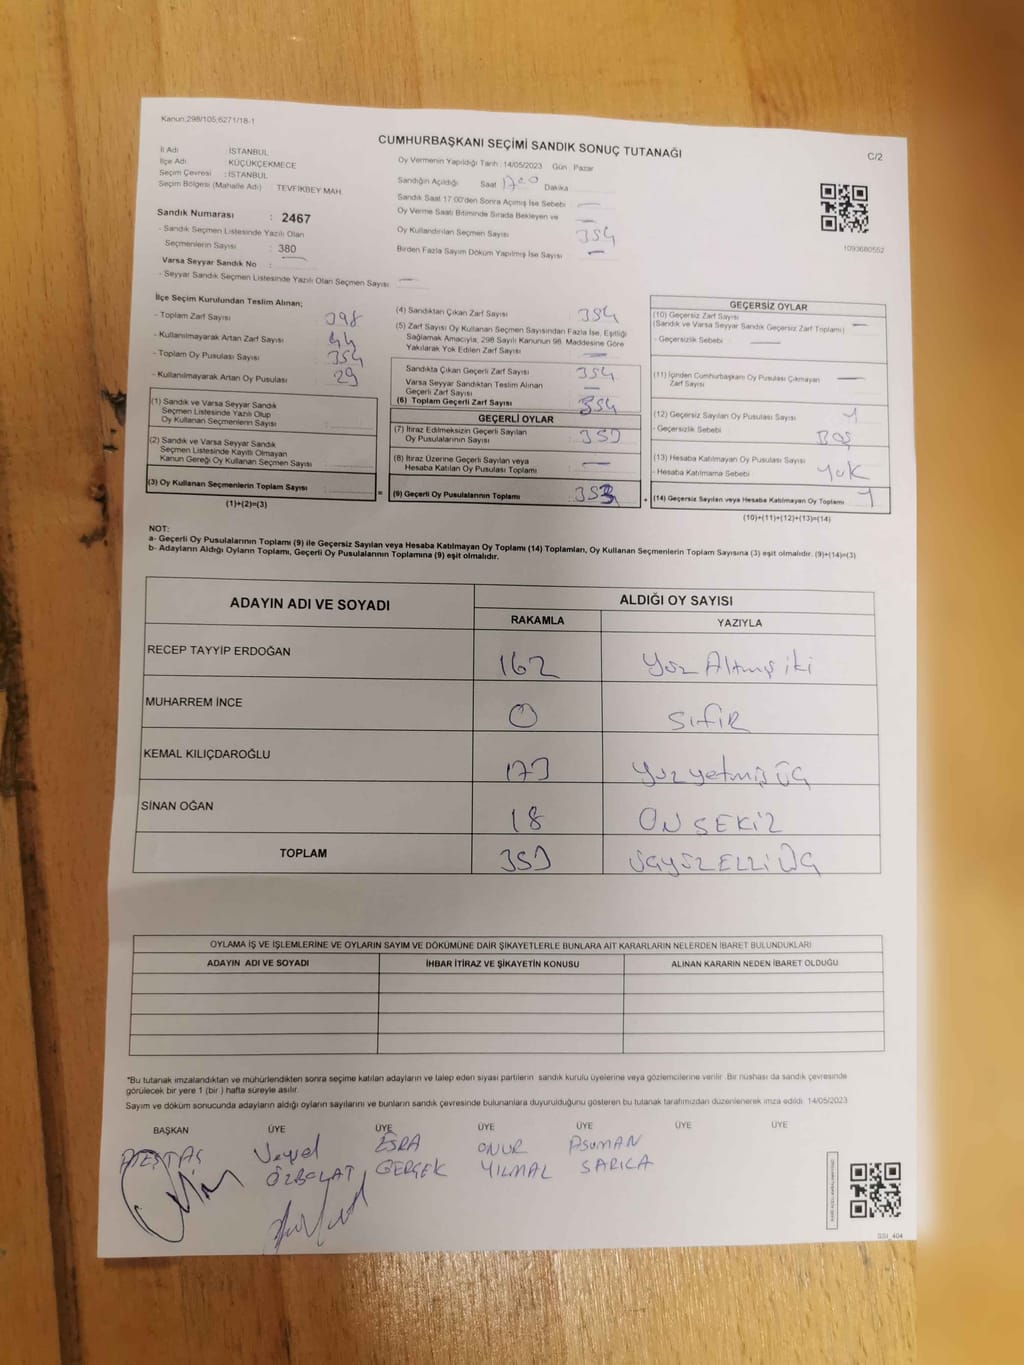 Kanun:298/105;6271/18-1
CUMHURBAŞKANI SEÇİMİ SANDIK SONUÇ TUTANAĞI
C/2
İl Adı : İSTANBUL
İlçe Adı : KÜÇÜKÇEKMECE
Seçim Çevresi : İSTANBUL
Seçim Bölgesi (Mahalle Adı) TEVFİKBEY MAH
Sandık Numarası : 2467
- Sandık Seçmen Listesinde Yazılı Olan
Seçmenlerin Sayısı : 380
Varsa Seyyar Sandık No :
- Seyyar Sandık Seçmen Listesinde Yazılı Olan Seçmen Sayısı
Oy Vermenin Yapıldığı Tarih : 14/05/2023 Gün : Pazar
Sandığın Açıldığı Saat 17.00 Dakika
Sandık Saat 17.00'den Sonra Açılmış İse Sebebi
Oy Verme Saati Bitiminde Sırada Bekleyen ve
Oy Kullandırılan Seçmen Sayısı 354
Birden Fazla Sayım Döküm Yapılmış İse Sayısı
1093680552
İlçe Seçim Kurulundan Teslim Alınan;
- Toplam Zarf Sayısı 398
- Kullanılmayarak Artan Zarf Sayısı 44
- Toplam Oy Pusulası Sayısı 354
- Kullanılmayarak Artan Oy Pusulası 29
(1) Sandık ve Varsa Seyyar Sandık
Seçmen Listesinde Yazılı Olup
Oy Kullanan Seçmen Sayısı
(2) Sandık ve Varsa Seyyar Sandık
Seçmen Listesinde Kayıtlı Olmayan
Kanun Gereği Oy Kullanan Seçmen Sayısı
(3) Oy Kullanan Seçmenlerin Toplam Sayısı
(1)+(2)=(3)
(4) Sandıktan Çıkan Zarf Sayısı 354
(5) Zarf Sayısı Oy Kullanan Seçmen Sayısından Fazla İse, Eşitliği
Sağlamak Amacıyla, 298 Sayılı Kanunun 98. Maddesine Göre
Yakılarak Yok Edilen Zarf Sayısı
Sandıkta Çıkan Geçerli Zarf Sayısı 354
Varsa Seyyar Sandıktan Teslim Alınan
Geçerli Zarf Sayısı
(6) Toplam Geçerli Zarf Sayısı 354
GEÇERLİ OYLAR
(7) İtiraz Edilmeksizin Geçerli Sayılan
Oy Pusulalarının Sayısı 353
(8) İtiraz Üzerine Geçerli Sayılan veya
Hesaba Katılan Oy Pusulası Toplamı
= (9) Geçerli Oy Pusulalarının Toplamı 353
GEÇERSİZ OYLAR
(10) Geçersiz Zarf Sayısı
(Sandık ve Varsa Seyyar Sandık Geçersiz Zarf Toplamı)
- Geçersizlik Sebebi
(11) İçinden Cumhurbaşkanı Oy Pusulası Çıkmayan
Zarf Sayısı
(12) Geçersiz Sayılan Oy Pusulası Sayısı 1
- Geçersizlik Sebebi BOŞ
(13) Hesaba Katılmayan Oy Pusulası Sayısı
- Hesaba Katılmama Sebebi YOK
+ (14) Geçersiz Sayılan veya Hesaba Katılmayan Oy Toplamı 1
(10)+(11)+(12)+(13)=(14)
NOT:
a- Geçerli Oy Pusulalarının Toplamı (9) ile Geçersiz Sayılan veya Hesaba Katılmayan Oy Toplamı (14) Toplamları, Oy Kullanan Seçmenlerin Toplam Sayısına (3) eşit olmalıdır. (9)+(14)=(3)
b- Adayların Aldığı Oyların Toplamı, Geçerli Oy Pusulalarının Toplamına (9) eşit olmalıdır.
ADAYIN ADI VE SOYADI
ALDIĞI OY SAYISI
RAKAMLA YAZIYLA
RECEP TAYYİP ERDOĞAN 162 Yüz Altmış iki
MUHARREM İNCE 0 SIFIR
KEMAL KILIÇDAROĞLU 173 Yüz yetmiş üç
SİNAN OĞAN 18 ON SEKİZ
TOPLAM 353 ÜÇYÜZELLİ ÜÇ
OYLAMA İŞ VE İŞLEMLERİNE VE OYLARIN SAYIM VE DÖKÜMÜNE DAİR ŞİKAYETLERLE BUNLARA AİT KARARLARIN NELERDEN İBARET BULUNDUKLARI
ADAYIN ADI VE SOYADI İHBAR İTİRAZ VE ŞİKAYETİN KONUSU ALINAN KARARIN NEDEN İBARET OLDUĞU
*Bu tutanak imzalandıktan ve mühürlendikten sonra seçime katılan adayların ve talep eden siyasi partilerin sandık kurulu üyelerine veya gözlemcilerine verilir. Bir nüshası da sandık çevresinde
görülecek bir yere 1 (bir) hafta süreyle asılır.
Sayım ve döküm sonucunda adayların aldığı oyların sayılarını ve bunların sandık çevresinde bulunanlara duyurulduğunu gösteren bu tutanak tarafımızdan düzenlenerek imza edildi. 14/05/2023
BAŞKAN ÜYE ÜYE ÜYE ÜYE ÜYE ÜYE
Veysel ESRA ONUR ASUMAN
ÖZBOLAT GERÇEK YILMAZ SARICA
GSI_404